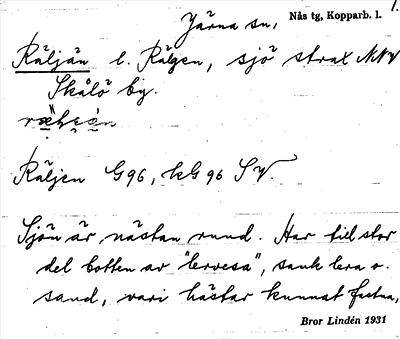 Järna sn, Nås tg, Kopparb. l. 1.
Räljän l. Rälgen, sjö strax NNV
Skålö by.
Räljen G96, kG96 SV.
Sjön är nästan rund. Har till stor
del botten av "lervesa", sank lera o.
sand, vari hästar kunnat fastna,
Bror Lindén 1931